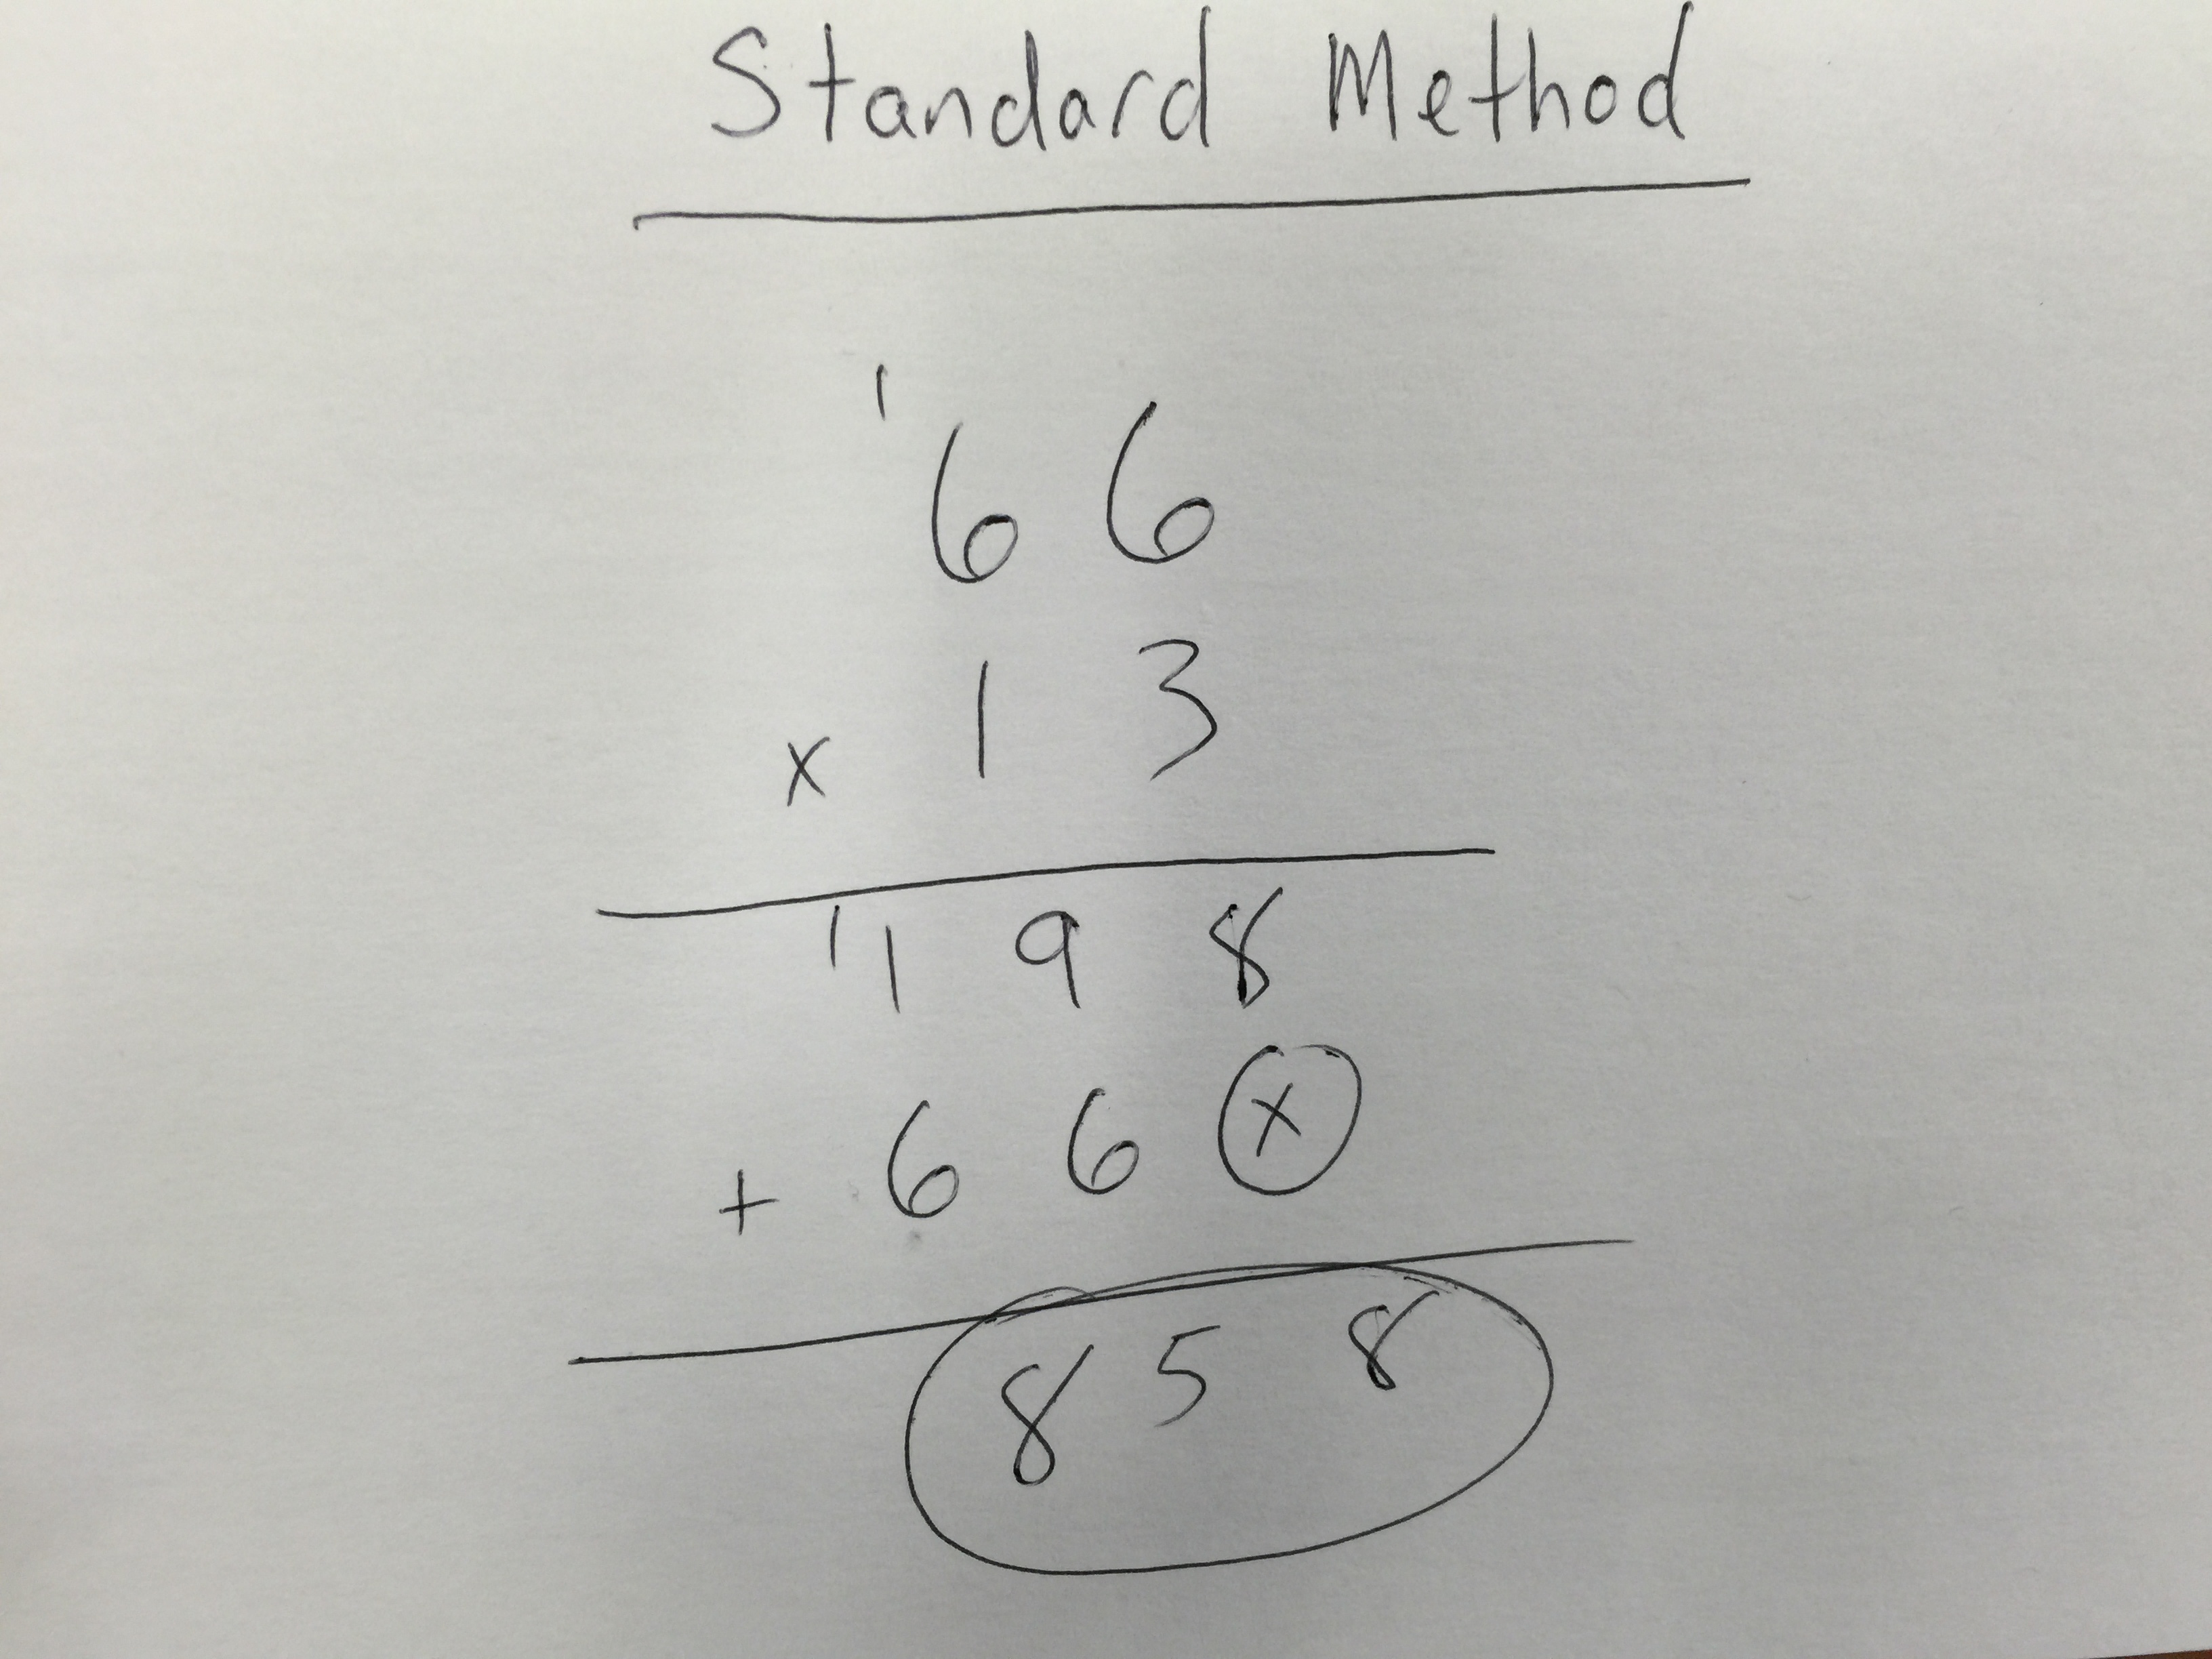 Standard Method
1
6 6
x 1 3
1
1 9 8
+ 6 6 x
8 5 8